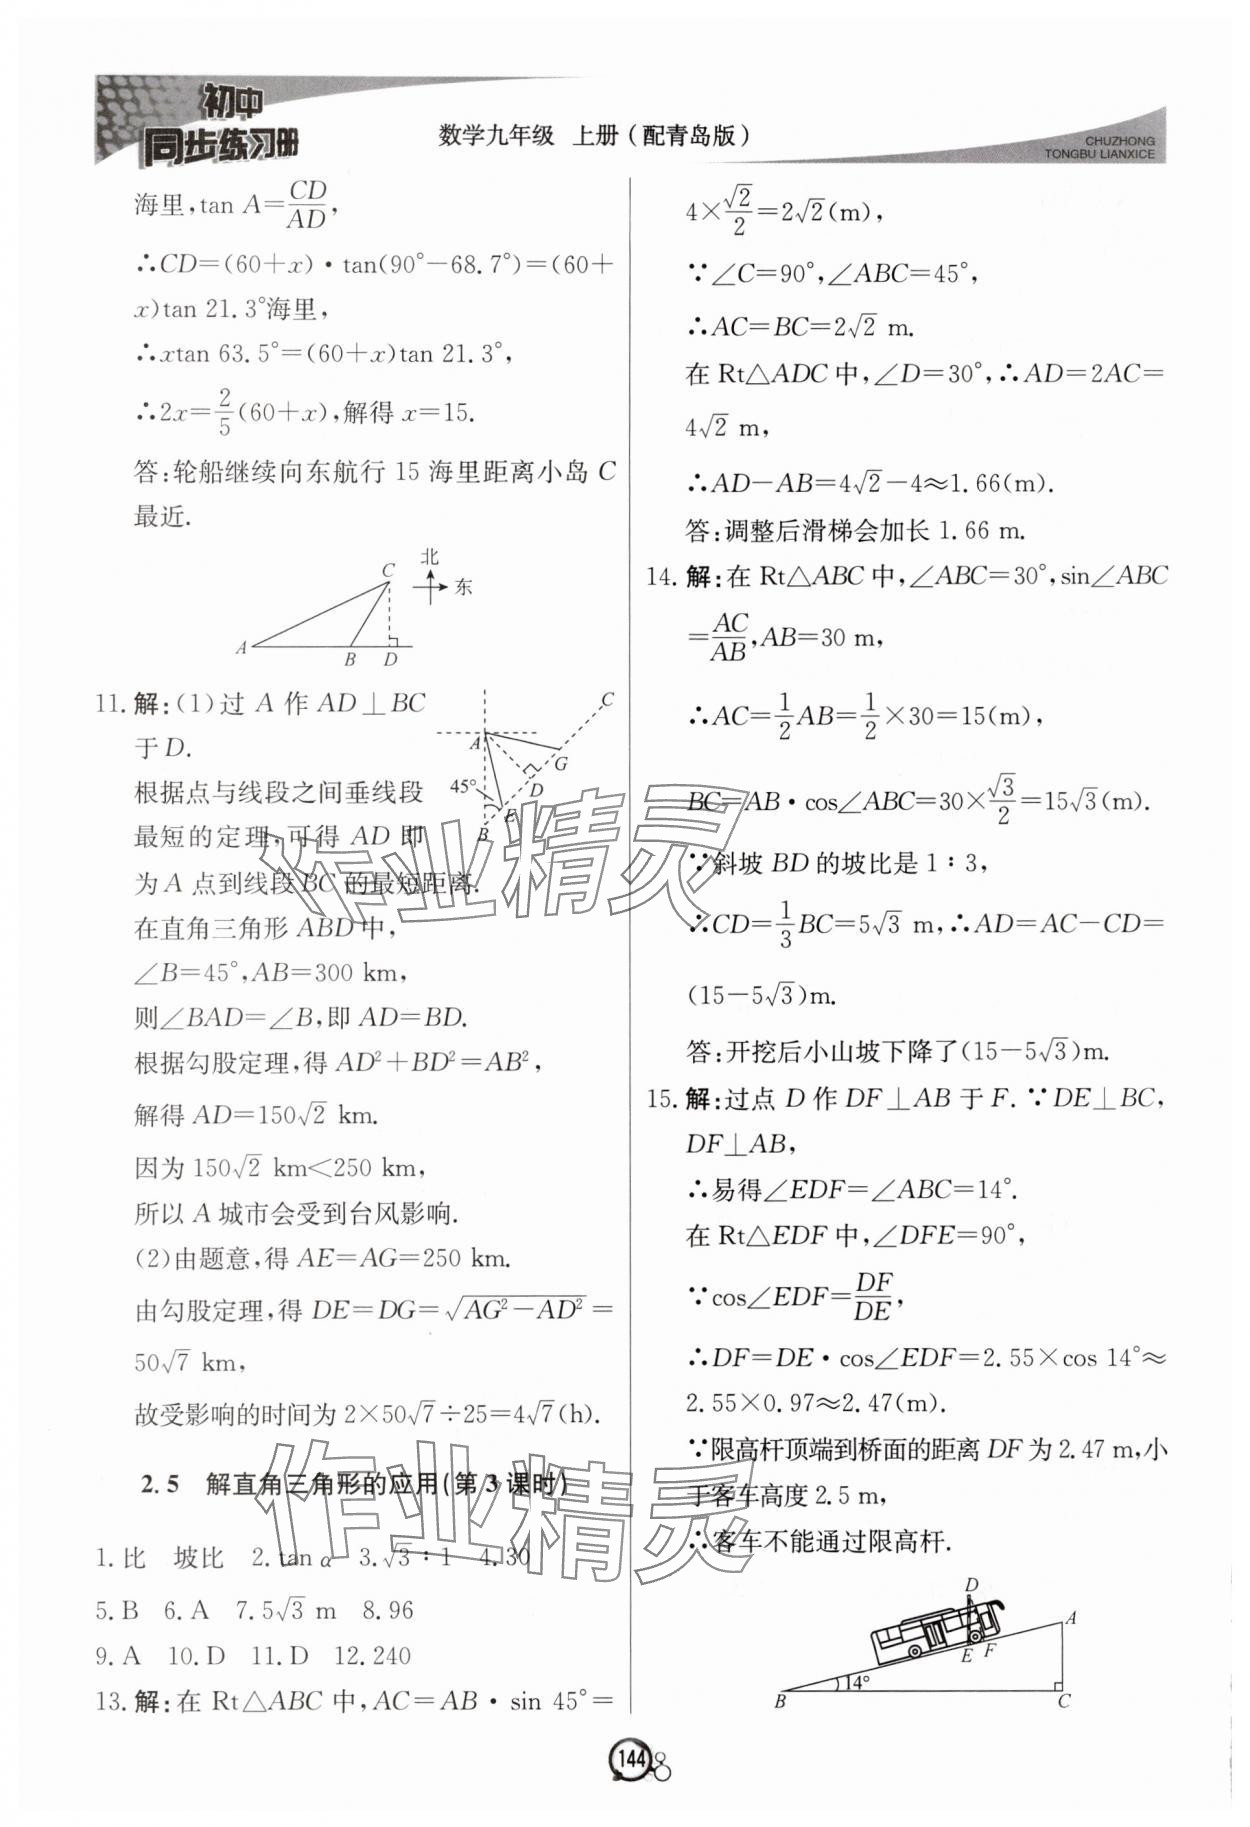 初中
同步练习册
数学九年级 上册(配青岛版)
CHUZHONG
TONGBU LIANXICE
海里,tan A=CD/AD,
∴CD=(60+x)·tan(90°-68.7°)=(60+
x)tan 21.3°海里,
∴xtan 63.5°=(60+x)tan 21.3°,
∴2x=2/5(60+x),解得 x=15.
答:轮船继续向东航行 15 海里距离小岛 C
最近.
北
东
C
A B D
11.解:(1)过 A 作 AD⊥BC
于 D.
根据点与线段之间垂线段
最短的定理,可得 AD 即
为 A 点到线段 BC 的最短距离.
在直角三角形 ABD 中,
∠B=45°,AB=300 km,
则∠BAD=∠B,即 AD=BD.
根据勾股定理,得 AD²+BD²=AB²,
解得 AD=150√2 km.
因为 150√2 km<250 km,
所以 A 城市会受到台风影响.
(2)由题意,得 AE=AG=250 km.
由勾股定理,得 DE=DG=√(AG²-AD²)=
50√7 km,
故受影响的时间为 2×50√7÷25=4√7(h).
C
A
G
D
45°
E
B
2.5 解直角三角形的应用(第3课时)
1.比 坡比 2.tan α 3.√3∶1 4.30
5.B 6.A 7.5√3 m 8.96
9.A 10.D 11.D 12.240
13.解:在 Rt△ABC 中,AC=AB·sin 45°=
4×√2/2=2√2(m),
∵∠C=90°,∠ABC=45°,
∴AC=BC=2√2 m.
在 Rt△ADC 中,∠D=30°,∴AD=2AC=
4√2 m,
∴AD-AB=4√2-4≈1.66(m).
答:调整后滑梯会加长 1.66 m.
14.解:在 Rt△ABC 中,∠ABC=30°,sin∠ABC
=AC/AB,AB=30 m,
∴AC=1/2AB=1/2×30=15(m),
BC=AB·cos∠ABC=30×√3/2=15√3(m).
∵斜坡 BD 的坡比是 1∶3,
∴CD=1/3BC=5√3 m,∴AD=AC-CD=
(15-5√3)m.
答:开挖后小山坡下降了(15-5√3)m.
15.解:过点 D 作 DF⊥AB 于 F.∵DE⊥BC,
DF⊥AB,
∴易得∠EDF=∠ABC=14°.
在 Rt△EDF 中,∠DFE=90°,
∵cos∠EDF=DF/DE,
∴DF=DE·cos∠EDF=2.55×cos 14°≈
2.55×0.97≈2.47(m).
∵限高杆顶端到桥面的距离 DF 为 2.47 m,小
于客车高度 2.5 m,
∴客车不能通过限高杆.
D
A
E F
14°
B C
144
作业精灵
作业精灵